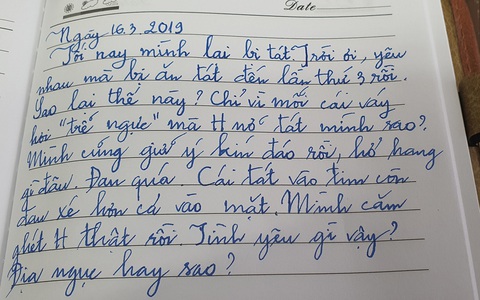 Date
Ngày 16.3.2019
Tối nay mình lại bị tát. Trời ơi, yêu
nhau mà bị ăn tát đến lần thứ 3 rồi.
Sao lại thế này? Chỉ vì mỗi cái váy
hơi "trễ ngực" mà H nó tát mình sao?
Mình cũng giữ ý kín đáo rồi, hở hang
gì đâu. Đau quá. Cái tát vào tim còn
đau xé hơn cả vào mặt. Mình căm
ghét H thật rồi. Tình yêu gì vậy?
Địa ngục hay sao?